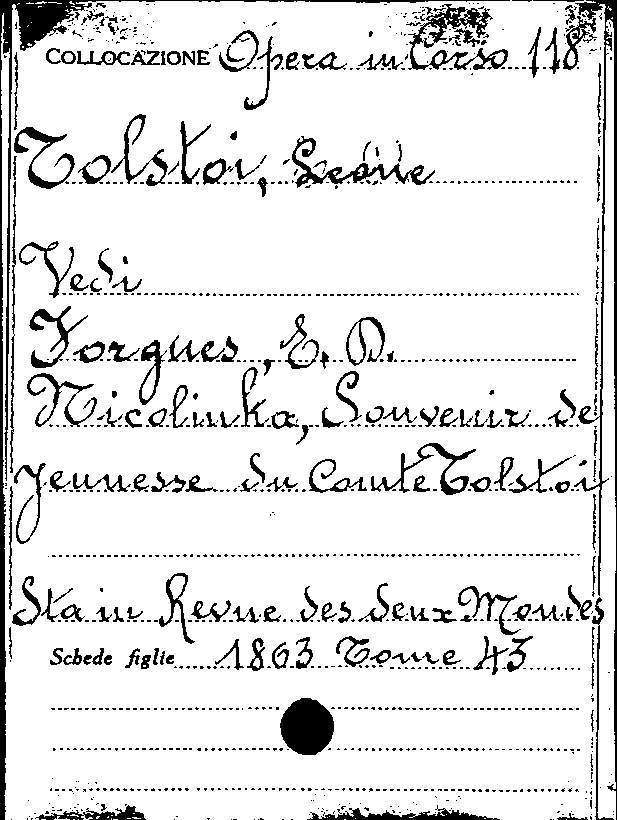 COLLOCAZIONE Opera in Corso 118
Tolstoi, Leone
Vedi
Forgues, E. D.
Nicolinka, Souvenir de
Jeunesse du Comte Tolstoi
Sta in Revue des deux Mondes
Schede figlie 1863 Tome 43